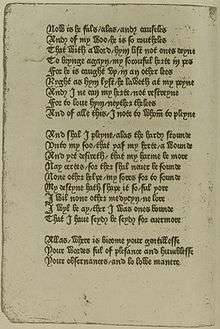 Now is he fals/alas/and causeles
And of my woo/he is so routheles
That with a word/hym list not ones deyne
To brynge agayn/my sorouful herte in pees
For he is caught vp/in an other lees
Right as hym lyst/he laweth at my peyne
And I ne can my herte not restreyne
For to loue hym/neythertheles
And of alle this/I note to Whom to pleyne

And shal I pleyne/alas the hardy stounde
Vnto my foo/that yaf my herte a Wounde
And yet desireth/that my harme be more
Nay certes/for ther shal neuer be founde
None other helpe/my sores for to sounde
My desteyne hath shape it so/ful yore
I Wil none other medecyn/ne lore
I Wyl be ay/ther I Was ones bounde
That I haue seyd/be seyd for euermore

Allas/Where is become your gentillesse
Your Wordes ful of plesance and humblesse
Your obseruances/and so lowe manere